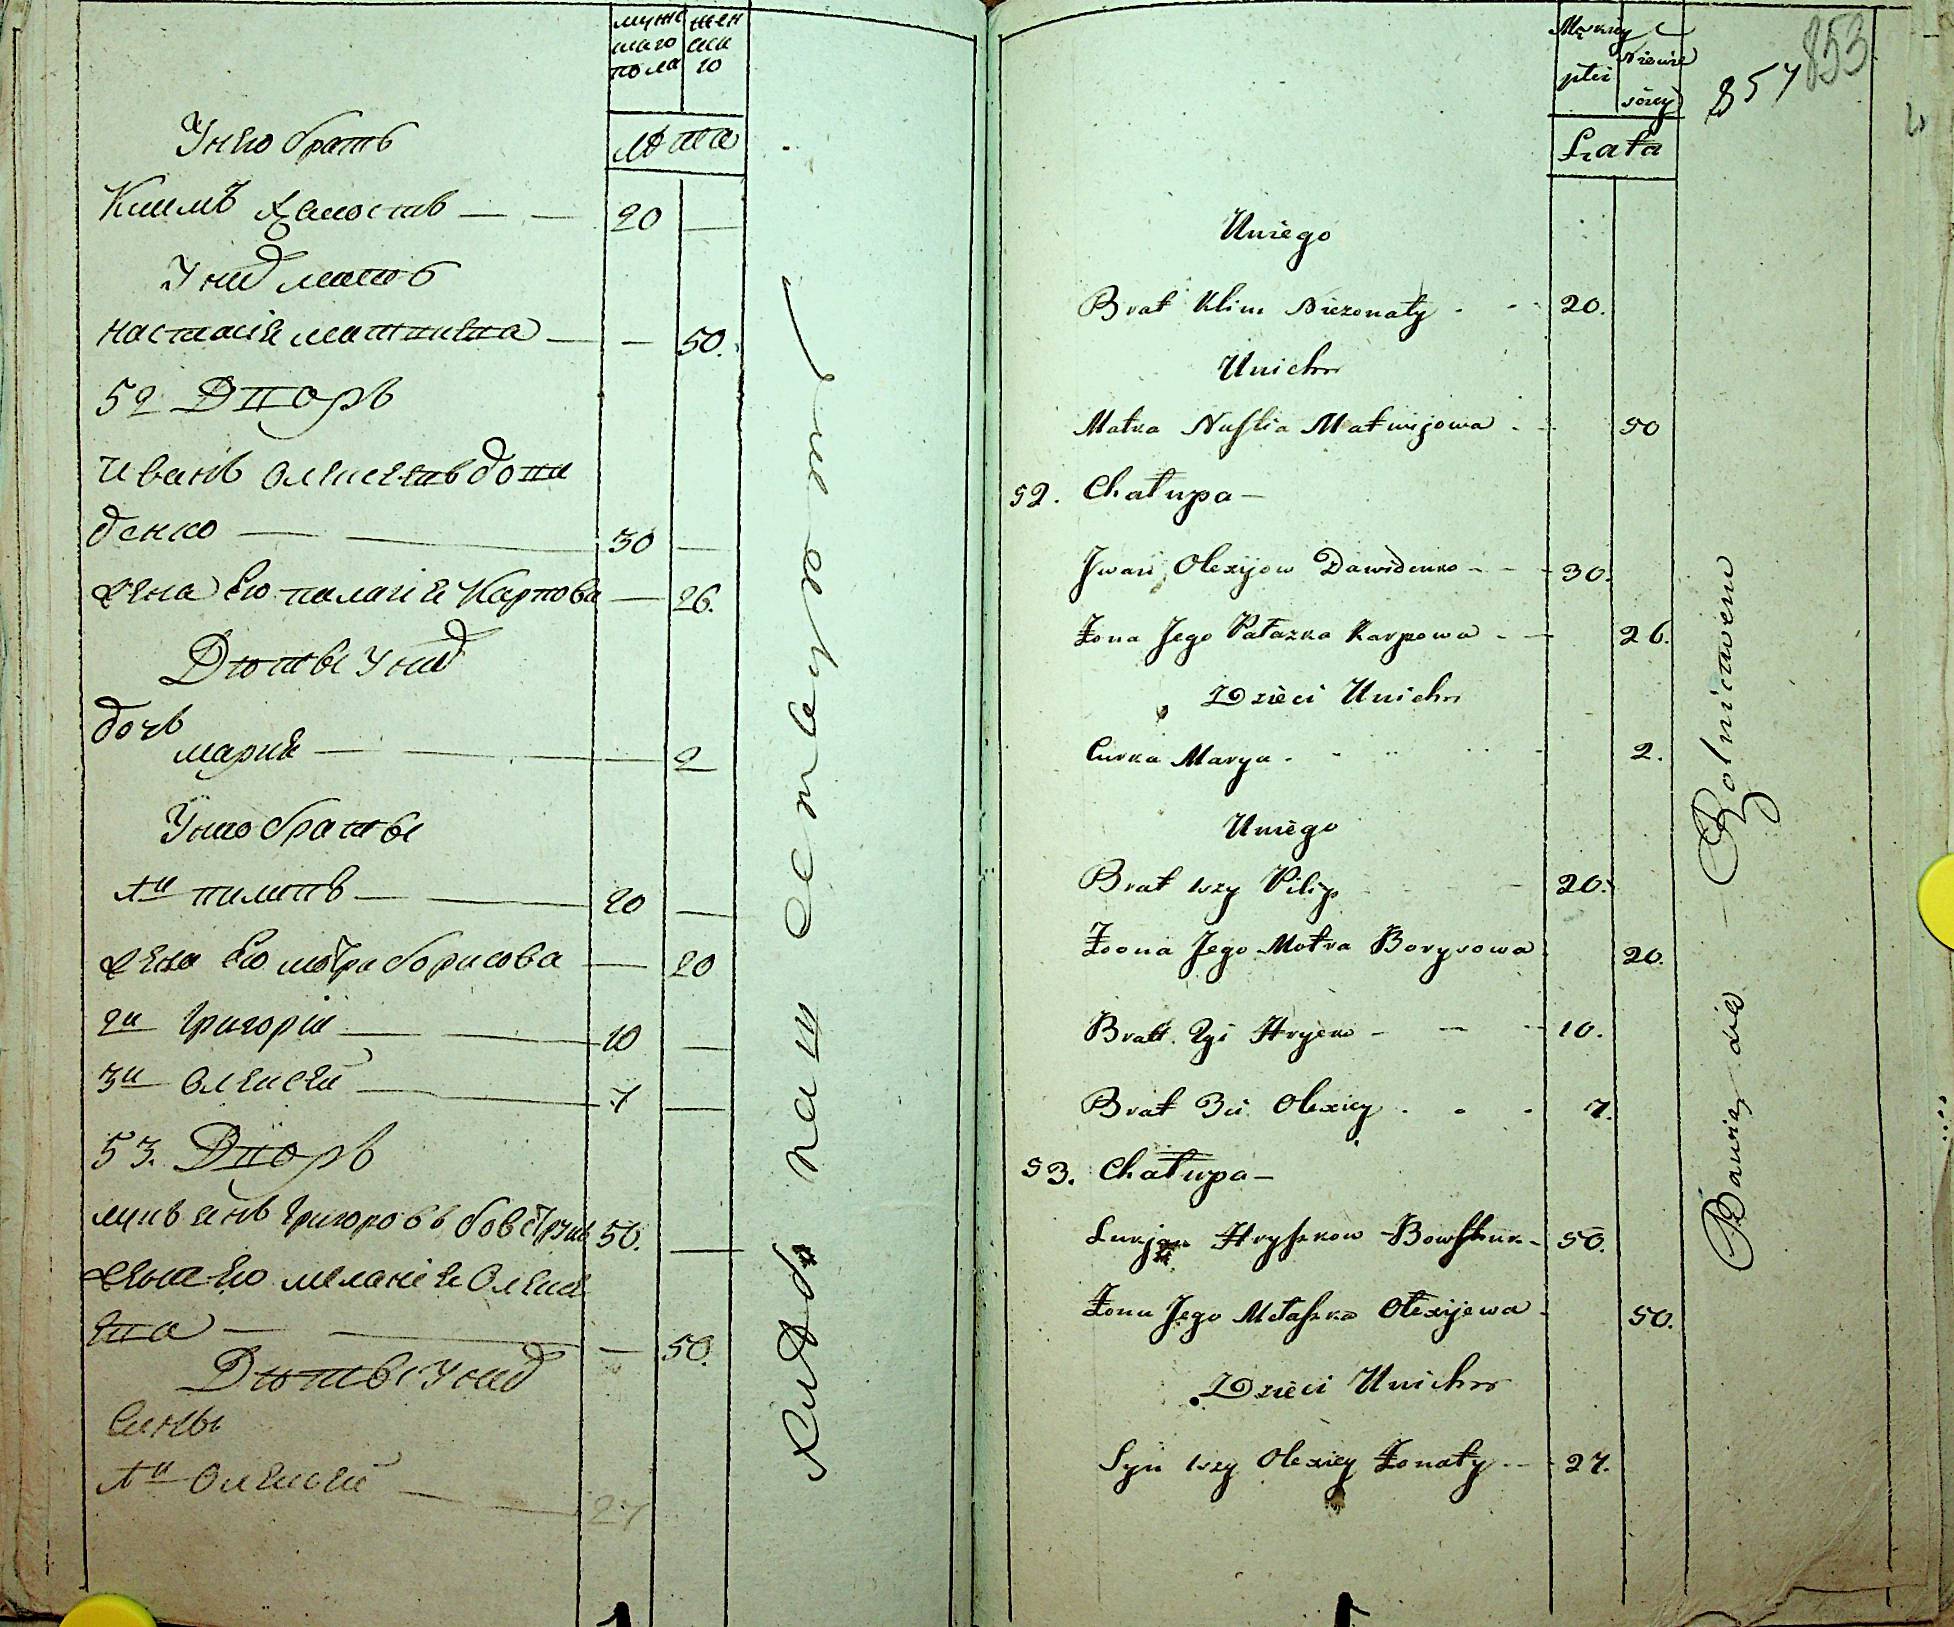 мужс жен
каго ска
пола го
Лѣта
У него братъ
Климъ холостъ — — 20 —
У них мать
Настасія матвиева — — 50.
52 Дворъ
Иванъ Олексеевъ дави
денко — — 30 —
жена Его палагія Карпова — 26.
Дѣти У них
дочь
Мария — — 2
У него братьи
1й пилипъ — — 20 —
жена Его мотря борисова — 20
2й Григорій — — 10 —
3й Олексей — 7 —
53. Дворъ
лукъянъ Григоровъ 50. —
жена Его меланія Олексе
ева — — — 50.
Дѣти У них
Сины
1й Олексей — — 27
хлѣбопашествуют
Męzkiey
Niewie
płci
sciey
853
857
Lata
U niego
Brat Klim Niezonaty . - - 20.
U nich
Matka Nastia Matwijowa . - 50
52. Chałupa —
Jwan Olexijow Dawidenko - - - 30.
Żona Jego Pałazka Karpowa - — 26.
Dzieci U nich
Curka Marya . 2.
U niego
Brat 1szy Pilip 20.
Żona Jego Motra Borysowa . 20.
Bratt. 2gi Hryćko - — - 10.
Brat 3ci Olexiey . . . 7.
53. Chałupa —
Lukjan Hryszkow - 50.
Żona Jego Mełaszka Olexijewa - 50.
Dzieci U nich
Syn 1szy Olexiey Żonaty - - - 27.
Bawią się — Rolnictwem